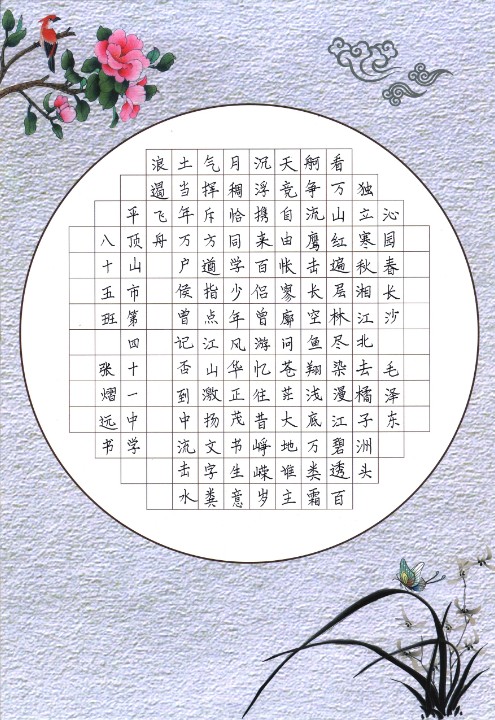 沁园春长沙 毛泽东
独立寒秋湘江北去橘子洲头
看万山红遍层林尽染漫江碧透百
舸争流鹰击长空鱼翔浅底万类霜
天竞自由怅寥廓问苍茫大地谁主
沉浮携来百侣曾游忆往昔峥嵘岁
月稠恰同学少年风华正茂书生意
气挥斥方遒指点江山激扬文字粪
土当年万户侯曾记否到中流击水
浪遏飞舟
平顶山市第四十一中学
八十五班 张熠远书